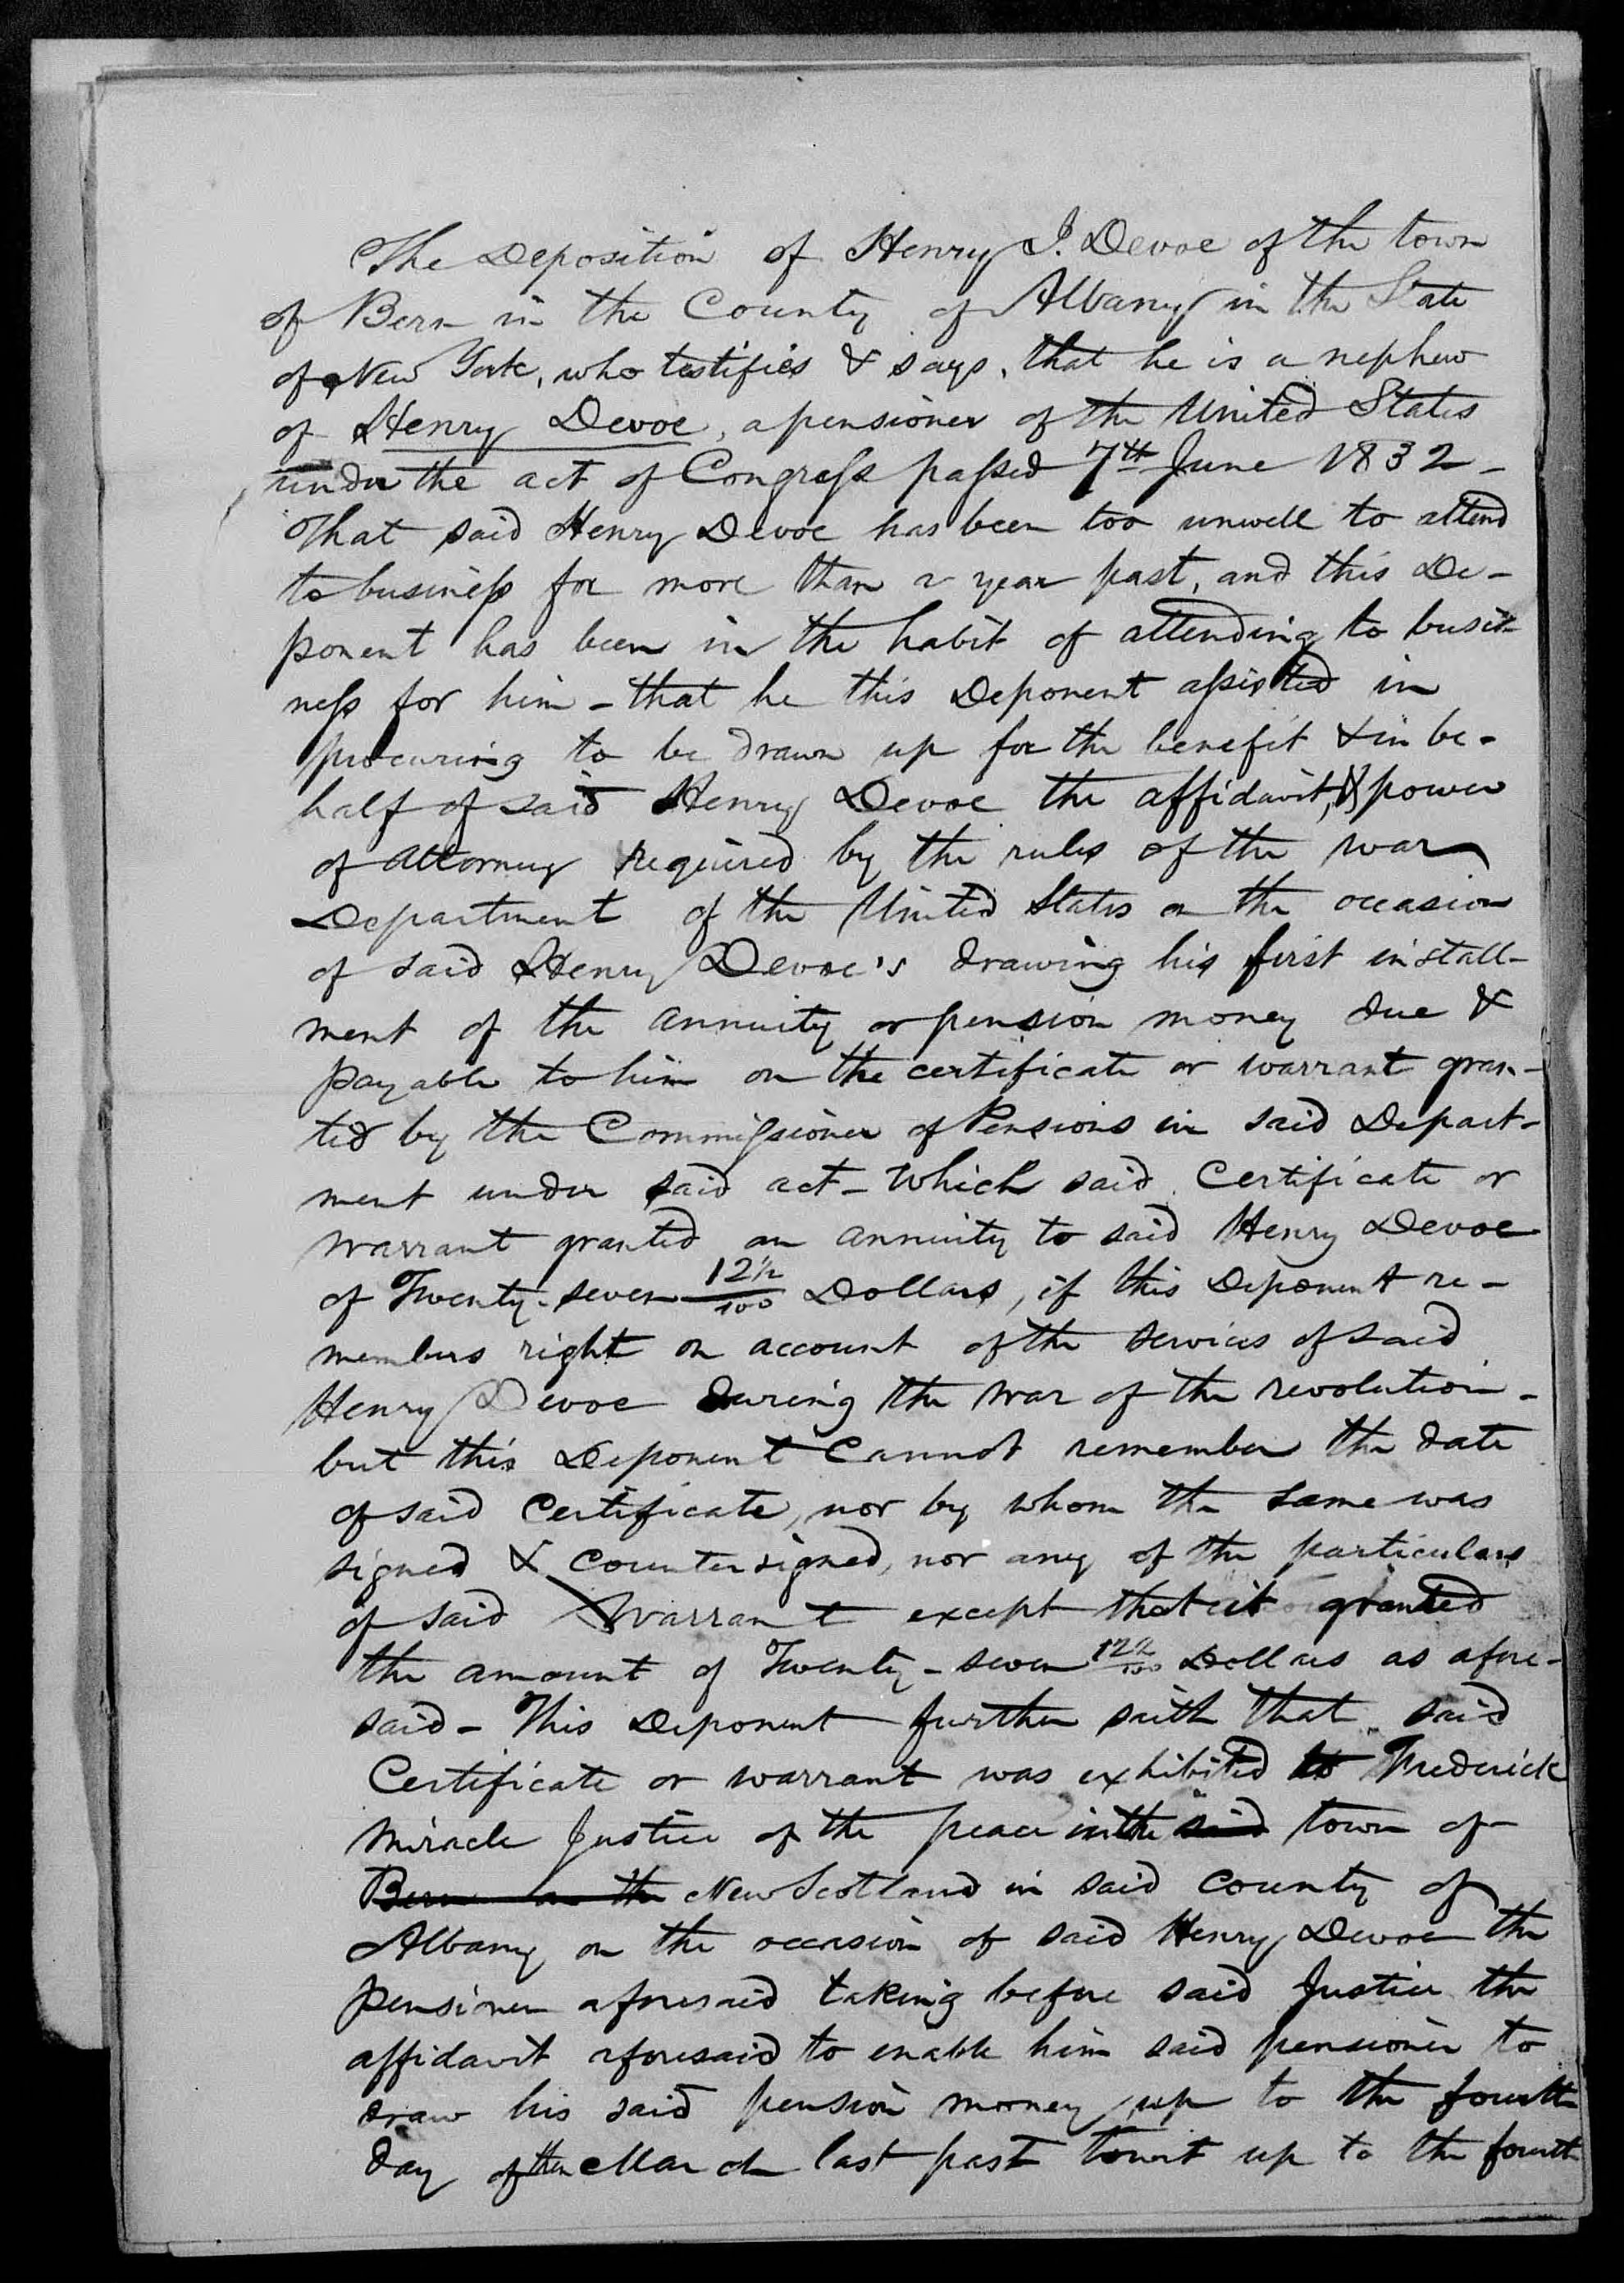 The Deposition of Henry I. Devoe of the town
of Bern in the County of Albany in the State
of New York, who testifies & says, that he is a nephew
of Henry Devoe, a pensioner of the United States
under the act of Congress passed 7th June 1832 -
That said Henry Devoe has been too unwell to attend
to business for more than a year past, and this De-
ponent has been in the habit of attending to busi-
ness for him - that he this Deponent assisted in
procuring to be drawn up for the benefit & in be-
half of said Henry Devoe the affidavit, & power
of attorney required by the rules of the war
Department of the United States on the occasion
of said Henry Devoe's drawing his first install-
ment of the annuity or pension money due &
payable to him on the certificate or warrant gran-
ted by the Commissioner of Pensions in said Depart-
ment under said act - which said Certificate or
warrant granted an annuity to said Henry Devoe
of Twenty-seven 12½/100 Dollars, if this Deponent re-
members right on account of the services of said
Henry Devoe during the war of the revolution -
but this Deponent Cannot remember the date
of said Certificate, nor by whom the same was
signed & Countersigned, nor any of the particulars
of said Warrant except that it granted
the amount of Twenty-seven 12½/100 Dollars as afore-
said - This Deponent further saith that said
Certificate or warrant was exhibited to Frederick
Miracle Justice of the peace in the said town of
Bern in the New Scotland in said County of
Albany on the occasion of said Henry Devoe the
pensioner aforesaid taking before said Justice the
affidavit aforesaid to enable him said pensioner to
draw his said pension money up to the fourth
day of then March last past to wit up to the fourth